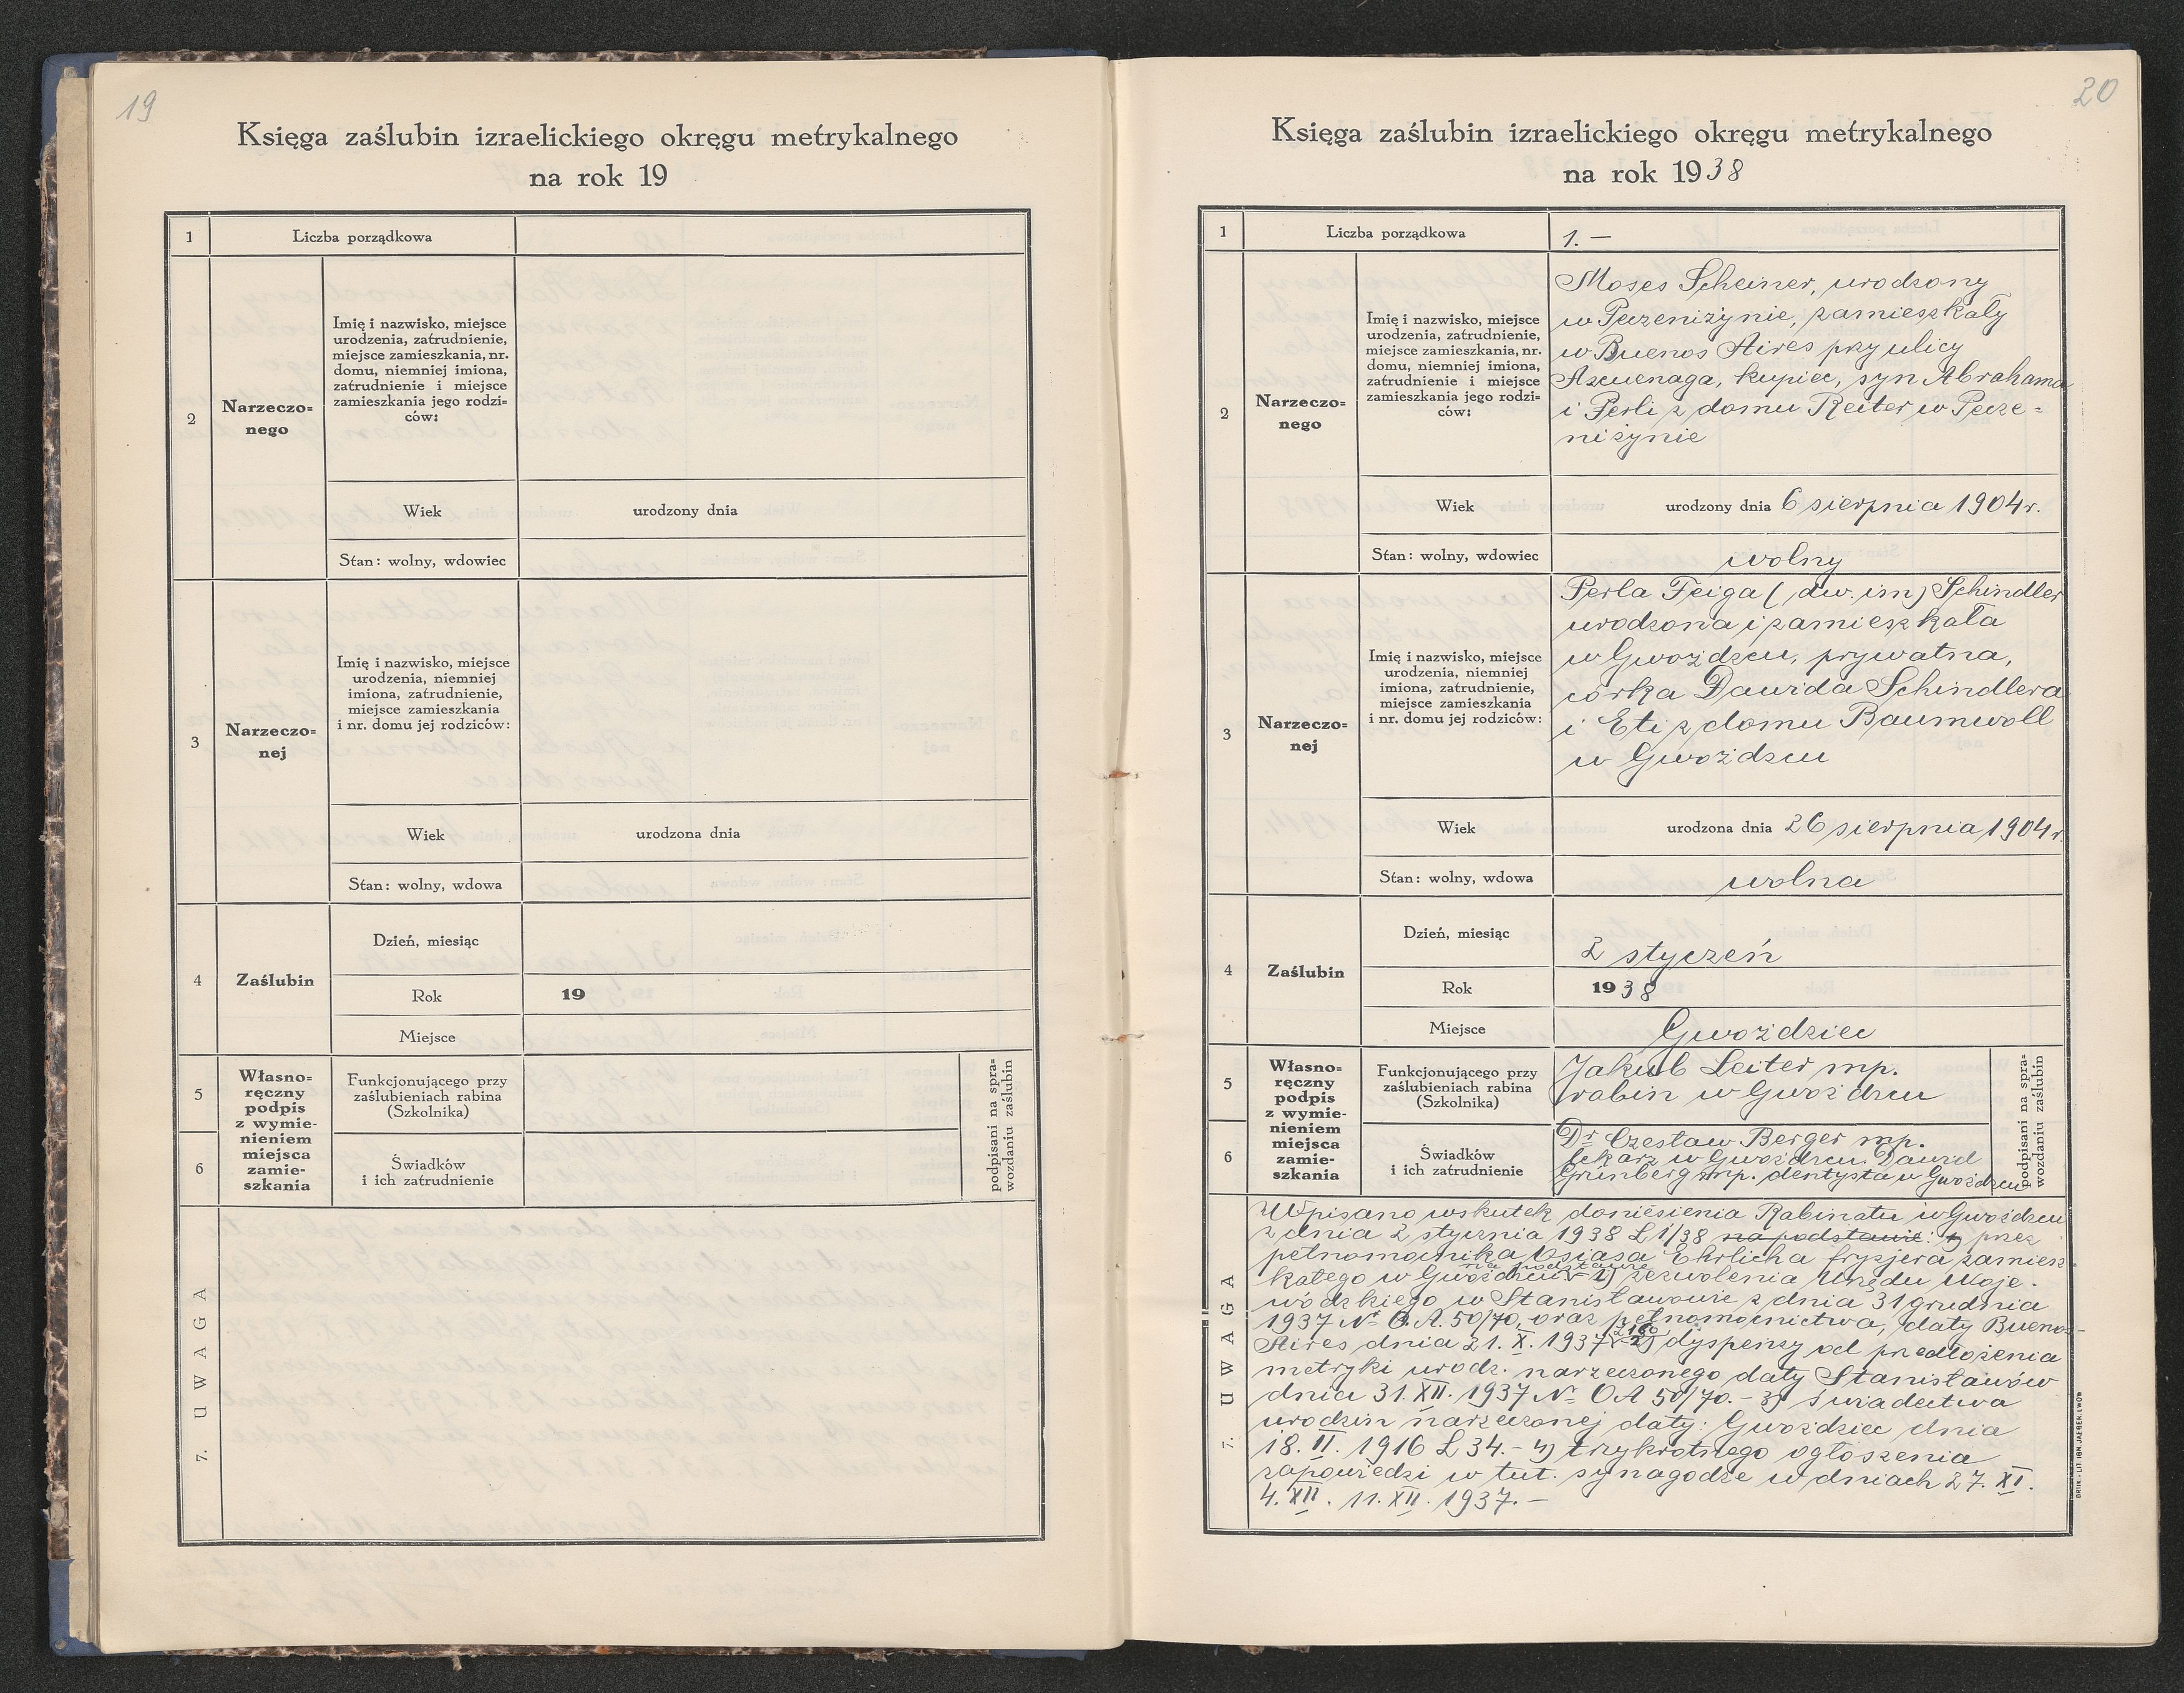 19
Księga zaślubin izraelickiego okręgu metrykalnego
na rok 19
1
Liczba porządkowa
2
Narzeczo=
nego
Imię i nazwisko, miejsce
urodzenia, zatrudnienie,
miejsce zamieszkania, nr.
domu, niemniej imiona,
zatrudnienie i miejsce
zamieszkania jego rodzi=
ców:
Wiek
urodzony dnia
Stan: wolny, wdowiec
3
Narzeczo=
nej
Imię i nazwisko, miejsce
urodzenia, niemniej
imiona, zatrudnienie,
miejsce zamieszkania
i nr. domu jej rodziców:
Wiek
urodzona dnia
Stan: wolny, wdowa
4
Zaślubin
Dzień, miesiąc
Rok
19
Miejsce
5
6
Własno=
ręczny
podpis
z wymie=
nieniem
miejsca
zamie=
szkania
Funkcjonującego przy
zaślubieniach rabina
(Szkolnika)
Świadków
i ich zatrudnienie
podpisani na spra=
wozdaniu zaślubin
7. UWAGA
20
Księga zaślubin izraelickiego okręgu metrykalnego
na rok 1938
1
Liczba porządkowa
1. —
2
Narzeczo=
nego
Imię i nazwisko, miejsce
urodzenia, zatrudnienie,
miejsce zamieszkania, nr.
domu, niemniej imiona,
zatrudnienie i miejsce
zamieszkania jego rodzi=
ców:
Moses Scheiner, urodzony
w Peczeniżynie, zamieszkały
w Buenos Aires przy ulicy
Azcuenaga, kupiec, syn Abrahama
i Perli z domu Reiter w Pecze=
niżynie
Wiek
urodzony dnia 6 sierpnia 1904 r.
Stan: wolny, wdowiec
wolny
3
Narzeczo=
nej
Imię i nazwisko, miejsce
urodzenia, niemniej
imiona, zatrudnienie,
miejsce zamieszkania
i nr. domu jej rodziców:
Perla Feiga (dw. im) Schindler
urodzona i zamieszkała
w Gwoźdzcu, prywatna,
córka Dawida Schindlera
i Eti z domu Baumwoll
w Gwoźdzcu
Wiek
urodzona dnia 26 sierpnia 1904 r.
Stan: wolny, wdowa
wolna
4
Zaślubin
Dzień, miesiąc
2 styczeń
Rok
1938
Miejsce
Gwoździec
5
6
Własno=
ręczny
podpis
z wymie=
nieniem
miejsca
zamie=
szkania
Funkcjonującego przy
zaślubieniach rabina
(Szkolnika)
Jakub Leiter mp.
rabin w Gwoźdzcu
Świadków
i ich zatrudnienie
Dr Czesław Berger mp.
lekarz w Gwoźdzcu Dawid
Grünberg mp. dentysta w Gwoźdzcu
podpisani na spra=
wozdaniu zaślubin
7. UWAGA
Wpisano wskutek doniesienia Rabinatu w Gwoźdzcu
z dnia 2 stycznia 1938 L 1/38 na podstawie: 1) przez
pełnomocnika Osiasa Ehrlicha fryzjera zamiesz-
kałego w Gwoźdzcu na podstawie 1) zezwolenia Urzędu Woje-
wódzkiego w Stanisławowie z dnia 31 grudnia
1937 Nr O.A. 50/70, oraz pełnomocnictwa, daty Buenos-
Aires dnia 21. X. 1937 2) dyspensy od przedłożenia
metryki urodz. narzeczonego daty Stanisławów
dnia 31. XII. 1937 Nr OA 50/70. – 3) świadectwa
urodzin narzeczonej daty: Gwoździec dnia
18. II. 1916 L 34. – 4) trzykrotnego ogłoszenia
zapowiedzi w tut. synagodze w dniach 27. XI.
4. XII. 11. XII. 1937. —
DRUK. I LIT. IGN. JAEGER, LWÓW